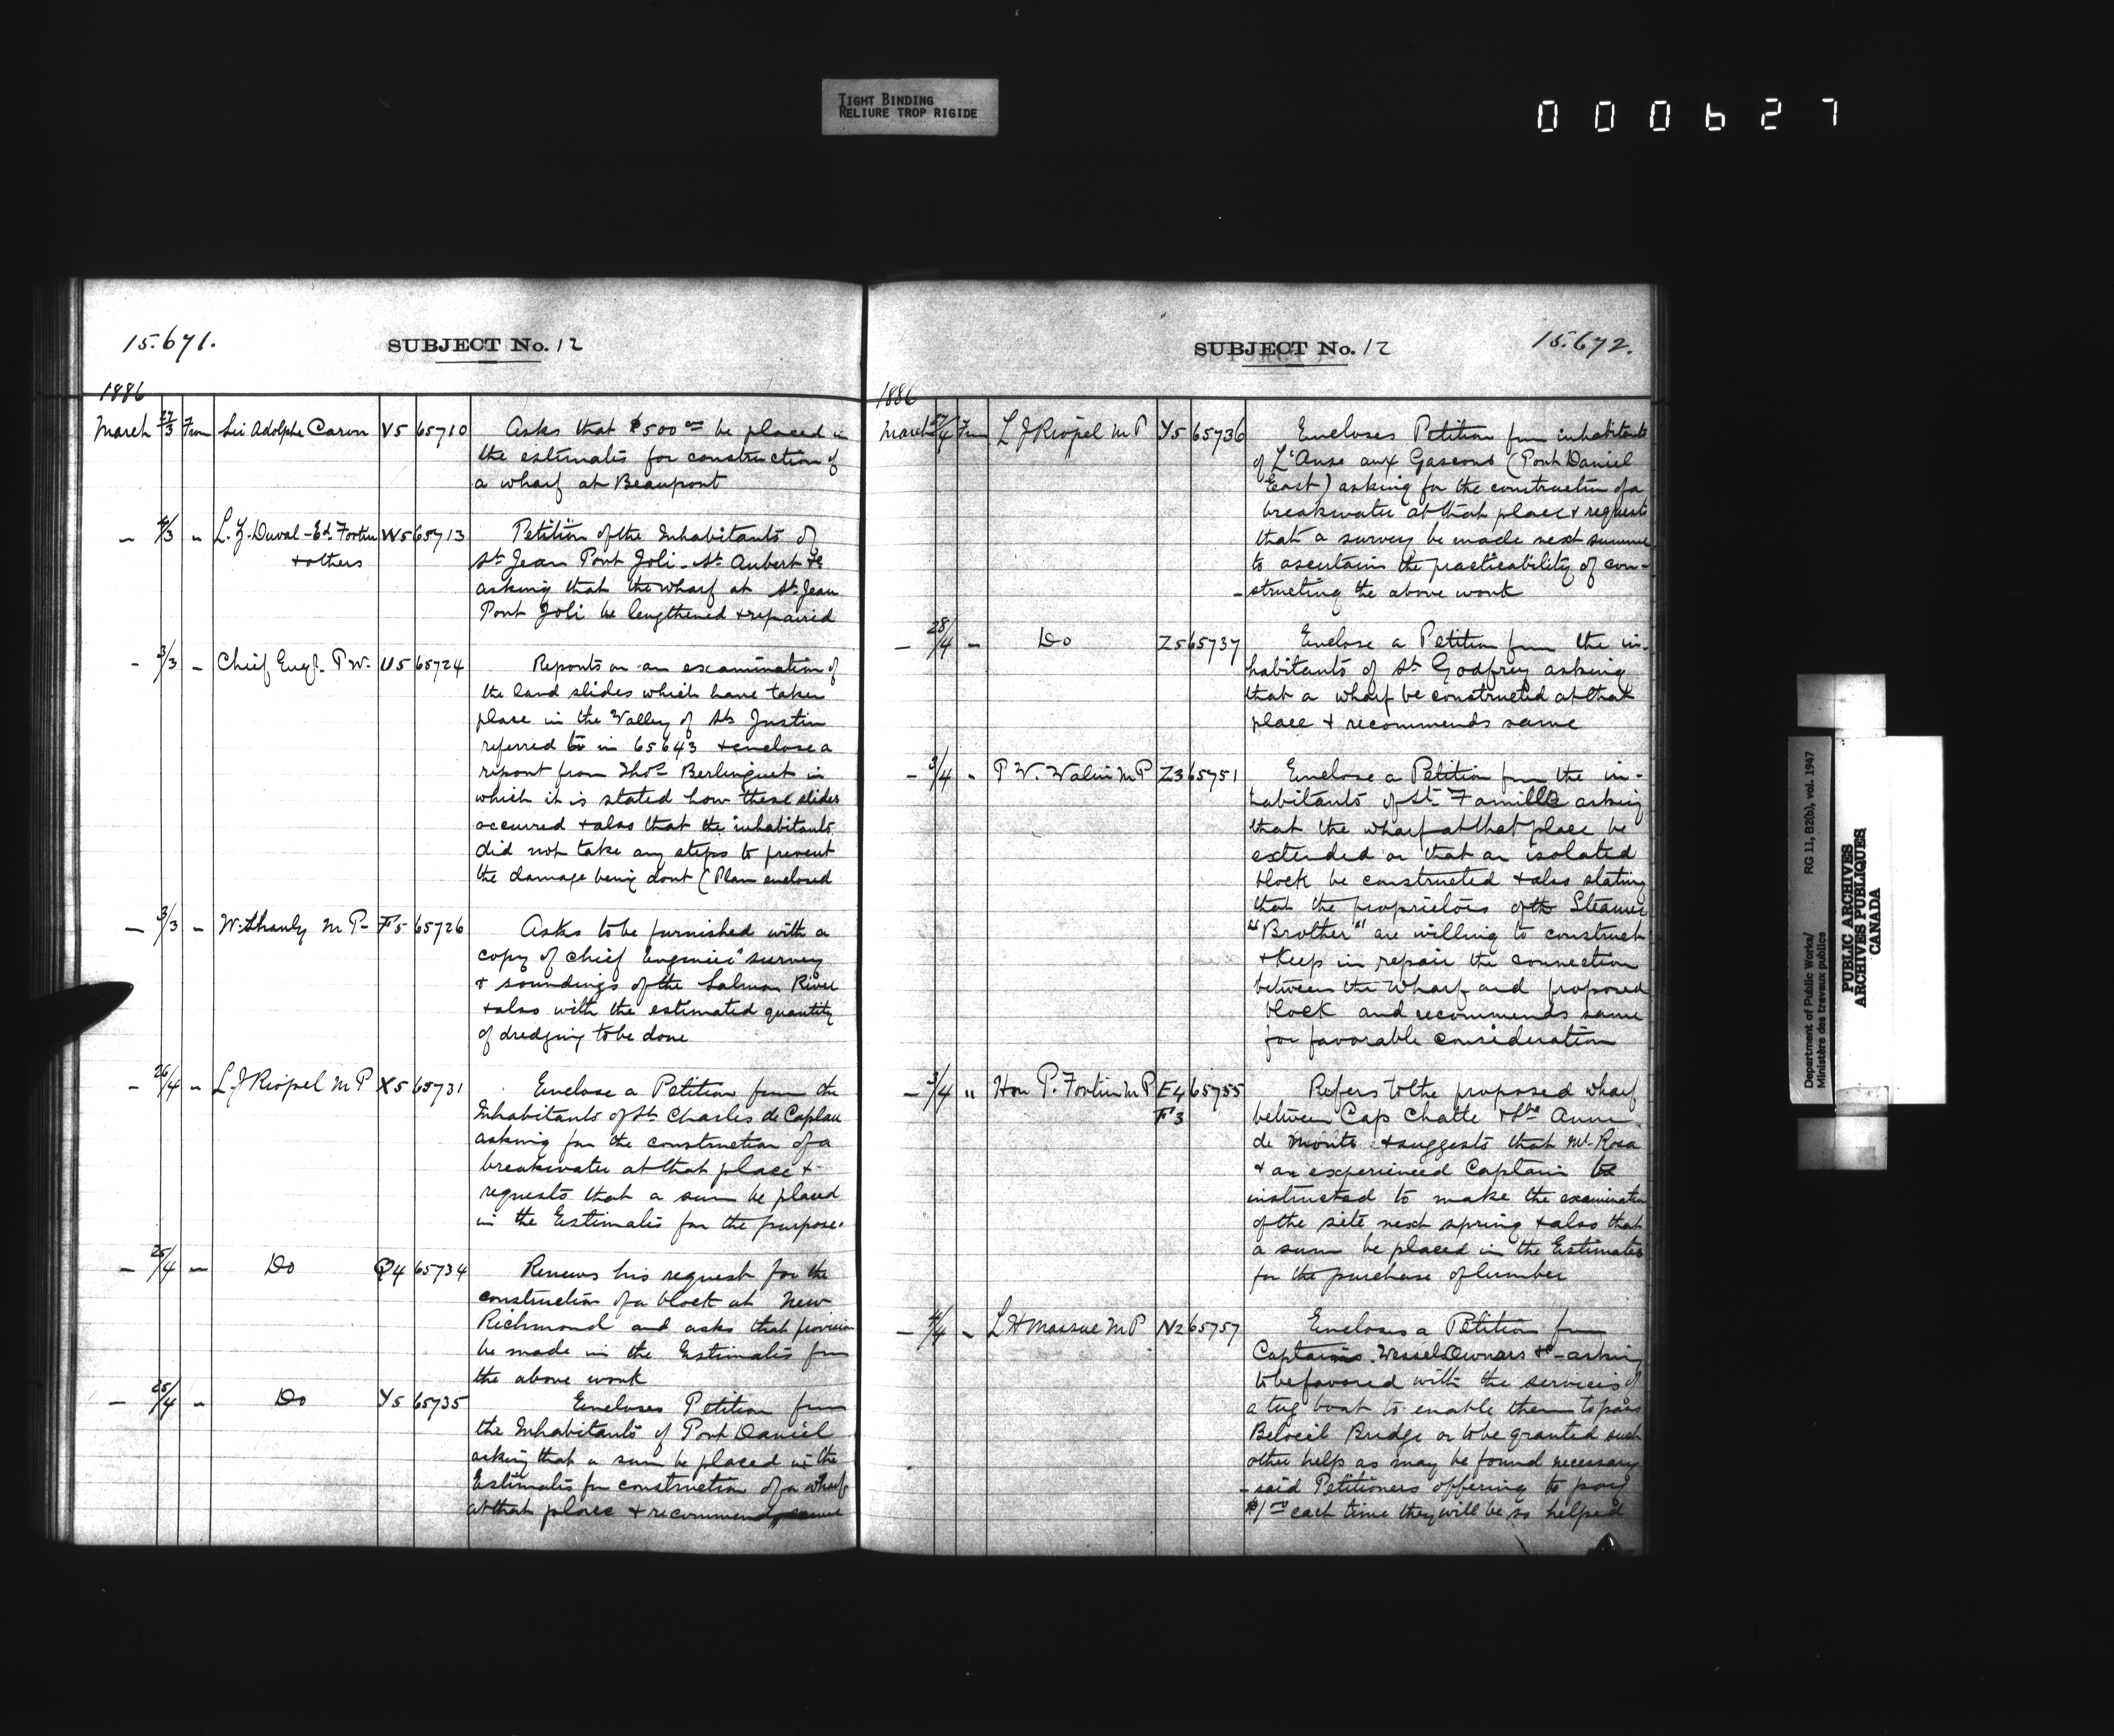 TIGHT BINDING
RELIURE TROP RIGIDE
000627
15.671.
SUBJECT No. 12
1886
March 27/3 From Sir Adolphe Caron V5 65710 Asks that $500 00 be placed in
the estimates for construction of
a wharf at Beaumont
- 4/3 - L. Z. Duval - Ed. Fortin W5 65713 Petition of the Inhabitants of
+ others St Jean Port Joli - St Aubert &c
asking that the wharf at St Jean
Port Joli be lengthened + repaired
- 3/3 - Chief Engr. P.W. U5 65724 Reports on an examination of
the land slides which have taken
place in the Valley of St Justin
referred to in 65643 + enclose a
report from Thos Berlinguet in
which it is stated how these slides
occurred + also that the inhabitants
did not take any steps to prevent
the damage being dont (Plan enclosed
- 3/3 - W. Shanly M P - F5 65726 Asks to be furnished with a
copy of chief Engineer's survey
+ soundings of the Salmon River
+ also with the estimated quantity
of dredging to be done
- 26/4 - L J Riopel M P X5 65731 Enclose a Petition from the
Inhabitants of St Charles de Caplan
asking for the construction of a
breakwater at that place +
requests that a sum be placed
in the Estimates for the purpose.
- 25/4 - Do Q4 65734 Renews his request for the
construction of a block at New
Richmond and asks that provision
be made in the Estimates for
the above work
- 25/4 - Do Y5 65735 Encloses Petition from
the Inhabitants of Port Daniel
asking that a sum be placed in the
Estimates for construction of a wharf
at that place + recommends same
SUBJECT No. 12
15.672.
1886
March 27/4 From L J Riopel M P Y5 65736 Encloses Petition from inhabitants
of L'Anse aux Gascons (Port Daniel
East) asking for the construction of a
breakwater at that place + requests
that a survey be made next summer
to ascertain the practicability of con-
-structing the above work
- 28/4 - Do Z5 65737 Enclose a Petition from the in-
habitants of St Godfroy asking
that a wharf be constructed at that
place + recommends same
- 3/4 - P. V. Valin M P Z3 65751 Enclose a Petition from the in-
habitants of St Famille asking
that the wharf at that place be
extended or that an isolated
block be constructed + also stating
that the proprietors of the Steamer
"Brother" are willing to construct
+ keep in repair the connection
between the wharf and proposed
block and recommends same
for favorable consideration
- 3/4 " Hon P. Fortin M P E4 65755 Refers to the proposed wharf
F3 between Cap Chatte & Ste Anne
de Monts + suggests that Mr Rosa
+ an experienced Captain be
instructed to make the examination
of the site next spring + also that
a sum be placed in the Estimates
for the purchase of lumber
- 4/4 - L H Massue M P N2 65757 Encloses a Petition from
Captains. Vessel Owners &c - asking
to be favored with the services of
a tug boat to enable them to pass
Beloeil Bridge or to be granted such
other help as may be found necessary
- said Petitioners offering to pay
$1 00 each time they will be so helped
Department of Public Works/ RG 11, B2(b), vol. 1947
Ministère des travaux publics
PUBLIC ARCHIVES
ARCHIVES PUBLIQUES
CANADA